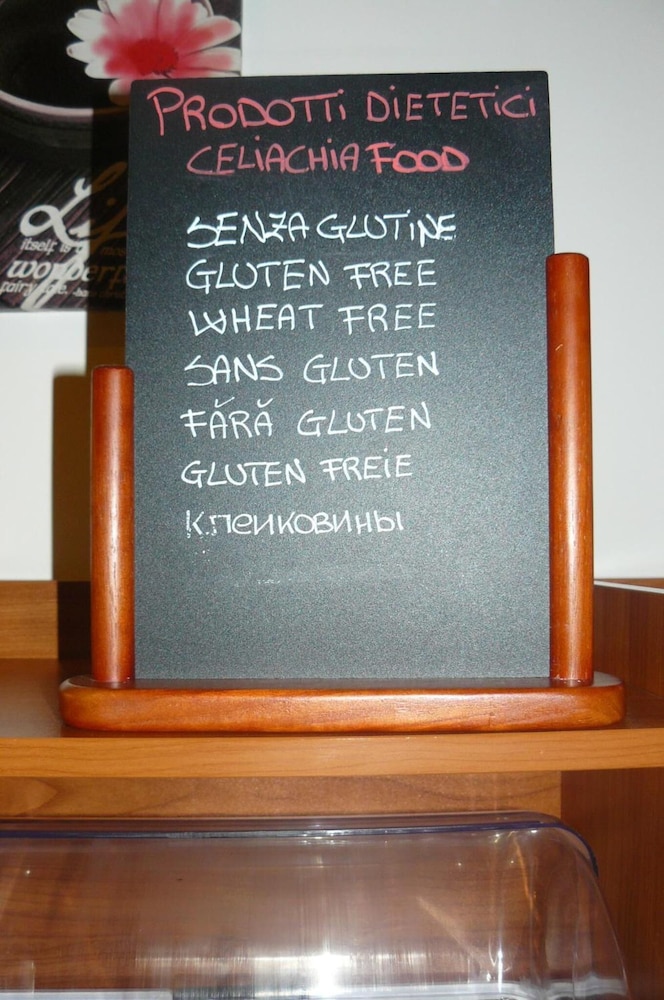 PRODOTTi DiETETiCi
CELiACHiA FOOD
SENZA GLUTiNE
GLUTEN FREE
WHEAT FREE
SANS GLUTEN
FĂRĂ GLUTEN
GLUTEN FREiE
Клеиковины
itself is